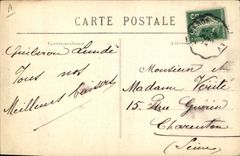 A
CARTE POSTALE
Correspondance
Quiberon Lundi
Tous nos
Meilleurs baisers
Monsieur et
Madame Verité
15 Rue Guérin
Charenton
(Seine)